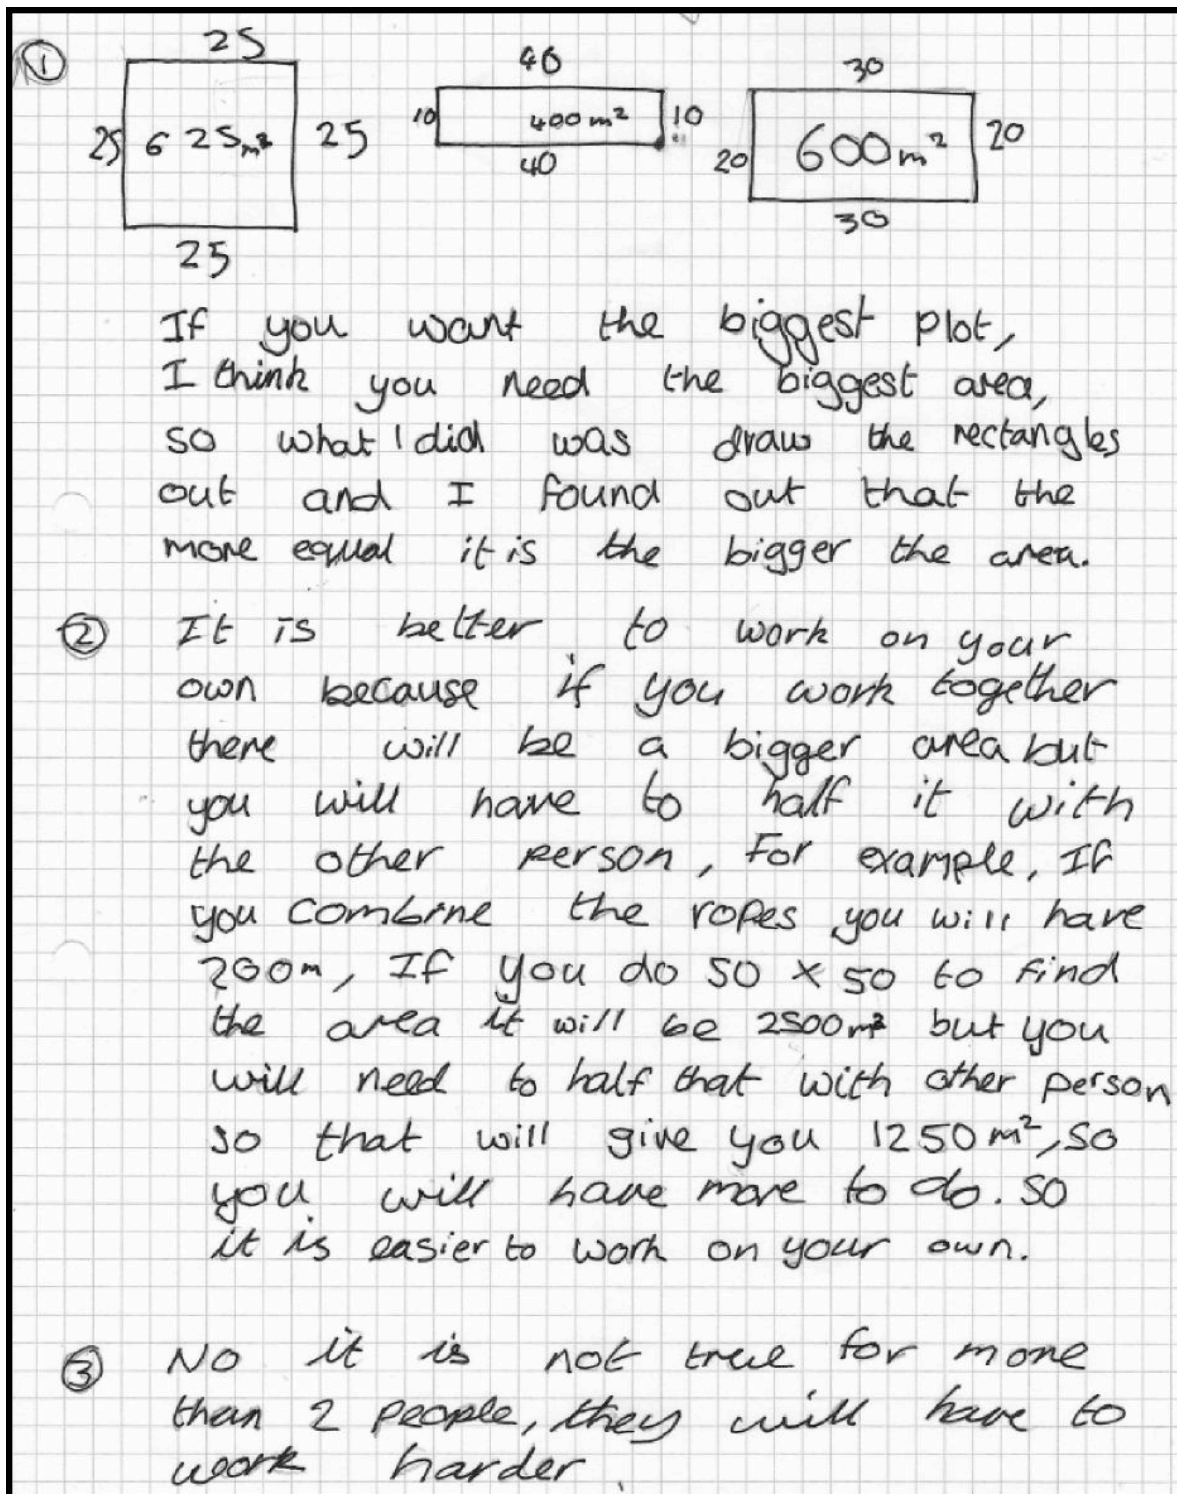 ①
25
25 625m² 25
25
40
10 400m² 10
40
30
20 600m² 20
30
If you want the biggest plot,
I think you need the biggest area,
so what I did was draw the rectangles
out and I found out that the
more equal it is the bigger the area.
② It is better to work on your
own because if you work together
there will be a bigger area but
you will have to half it with
the other person, For example, If
you combine the ropes you will have
200m, If you do 50 × 50 to find
the area it will be 2500m² but you
will need to half that with other person
so that will give you 1250m², so
you will have more to do. So
it is easier to work on your own.
③ No it is not true for more
than 2 people, they will have to
work harder.